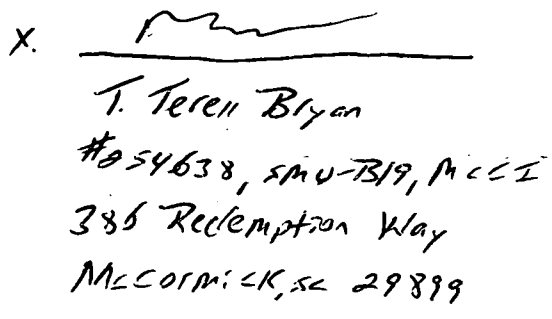 X.
T. Terell Bryan
#254638, SMU-B19, McCI
386 Redemption Way
McCormick, SC 29899